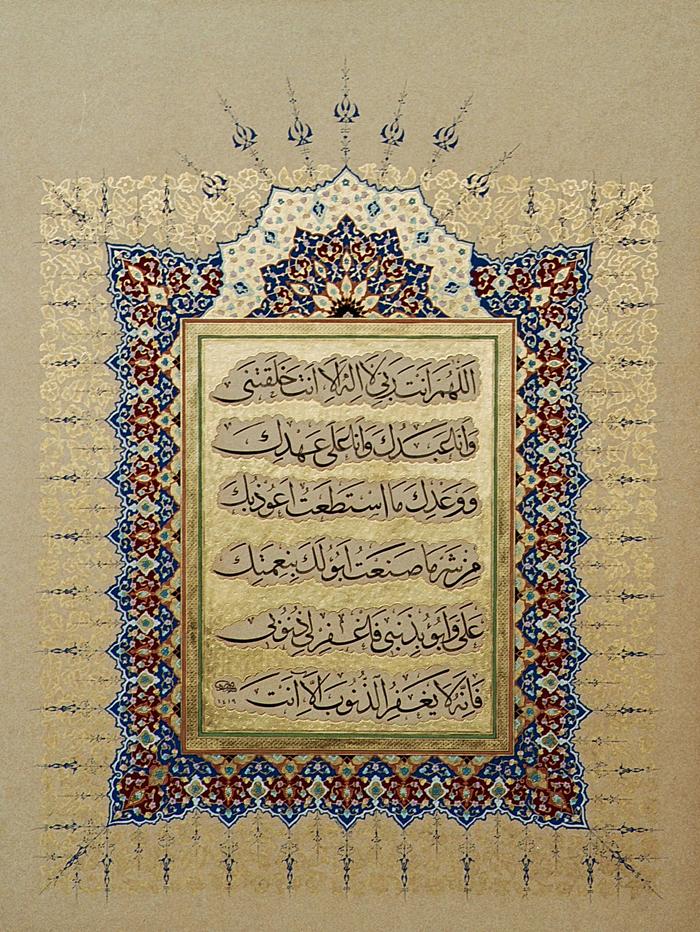 اللَّهُمَّ اَنْتَ رَبِّي لَا اِلٰهَ اِلَّا اَنْتَ خَلَقْتَنِي
وَاَنَا عَبْدُكَ وَاَنَا عَلَى عَهْدِكَ
وَوَعْدِكَ مَا اسْتَطَعْتُ اَعُوذُ بِكَ
مِنْ شَرِّ مَا صَنَعْتُ اَبُوءُ لَكَ بِنِعْمَتِكَ
عَلَيَّ وَاَبُوءُ بِذَنْبِي فَاغْفِرْ لِي ذُنُوبِي
فَاِنَّهُ لَا يَغْفِرُ الذُّنُوبَ اِلَّا اَنْتَ
١٤١٩